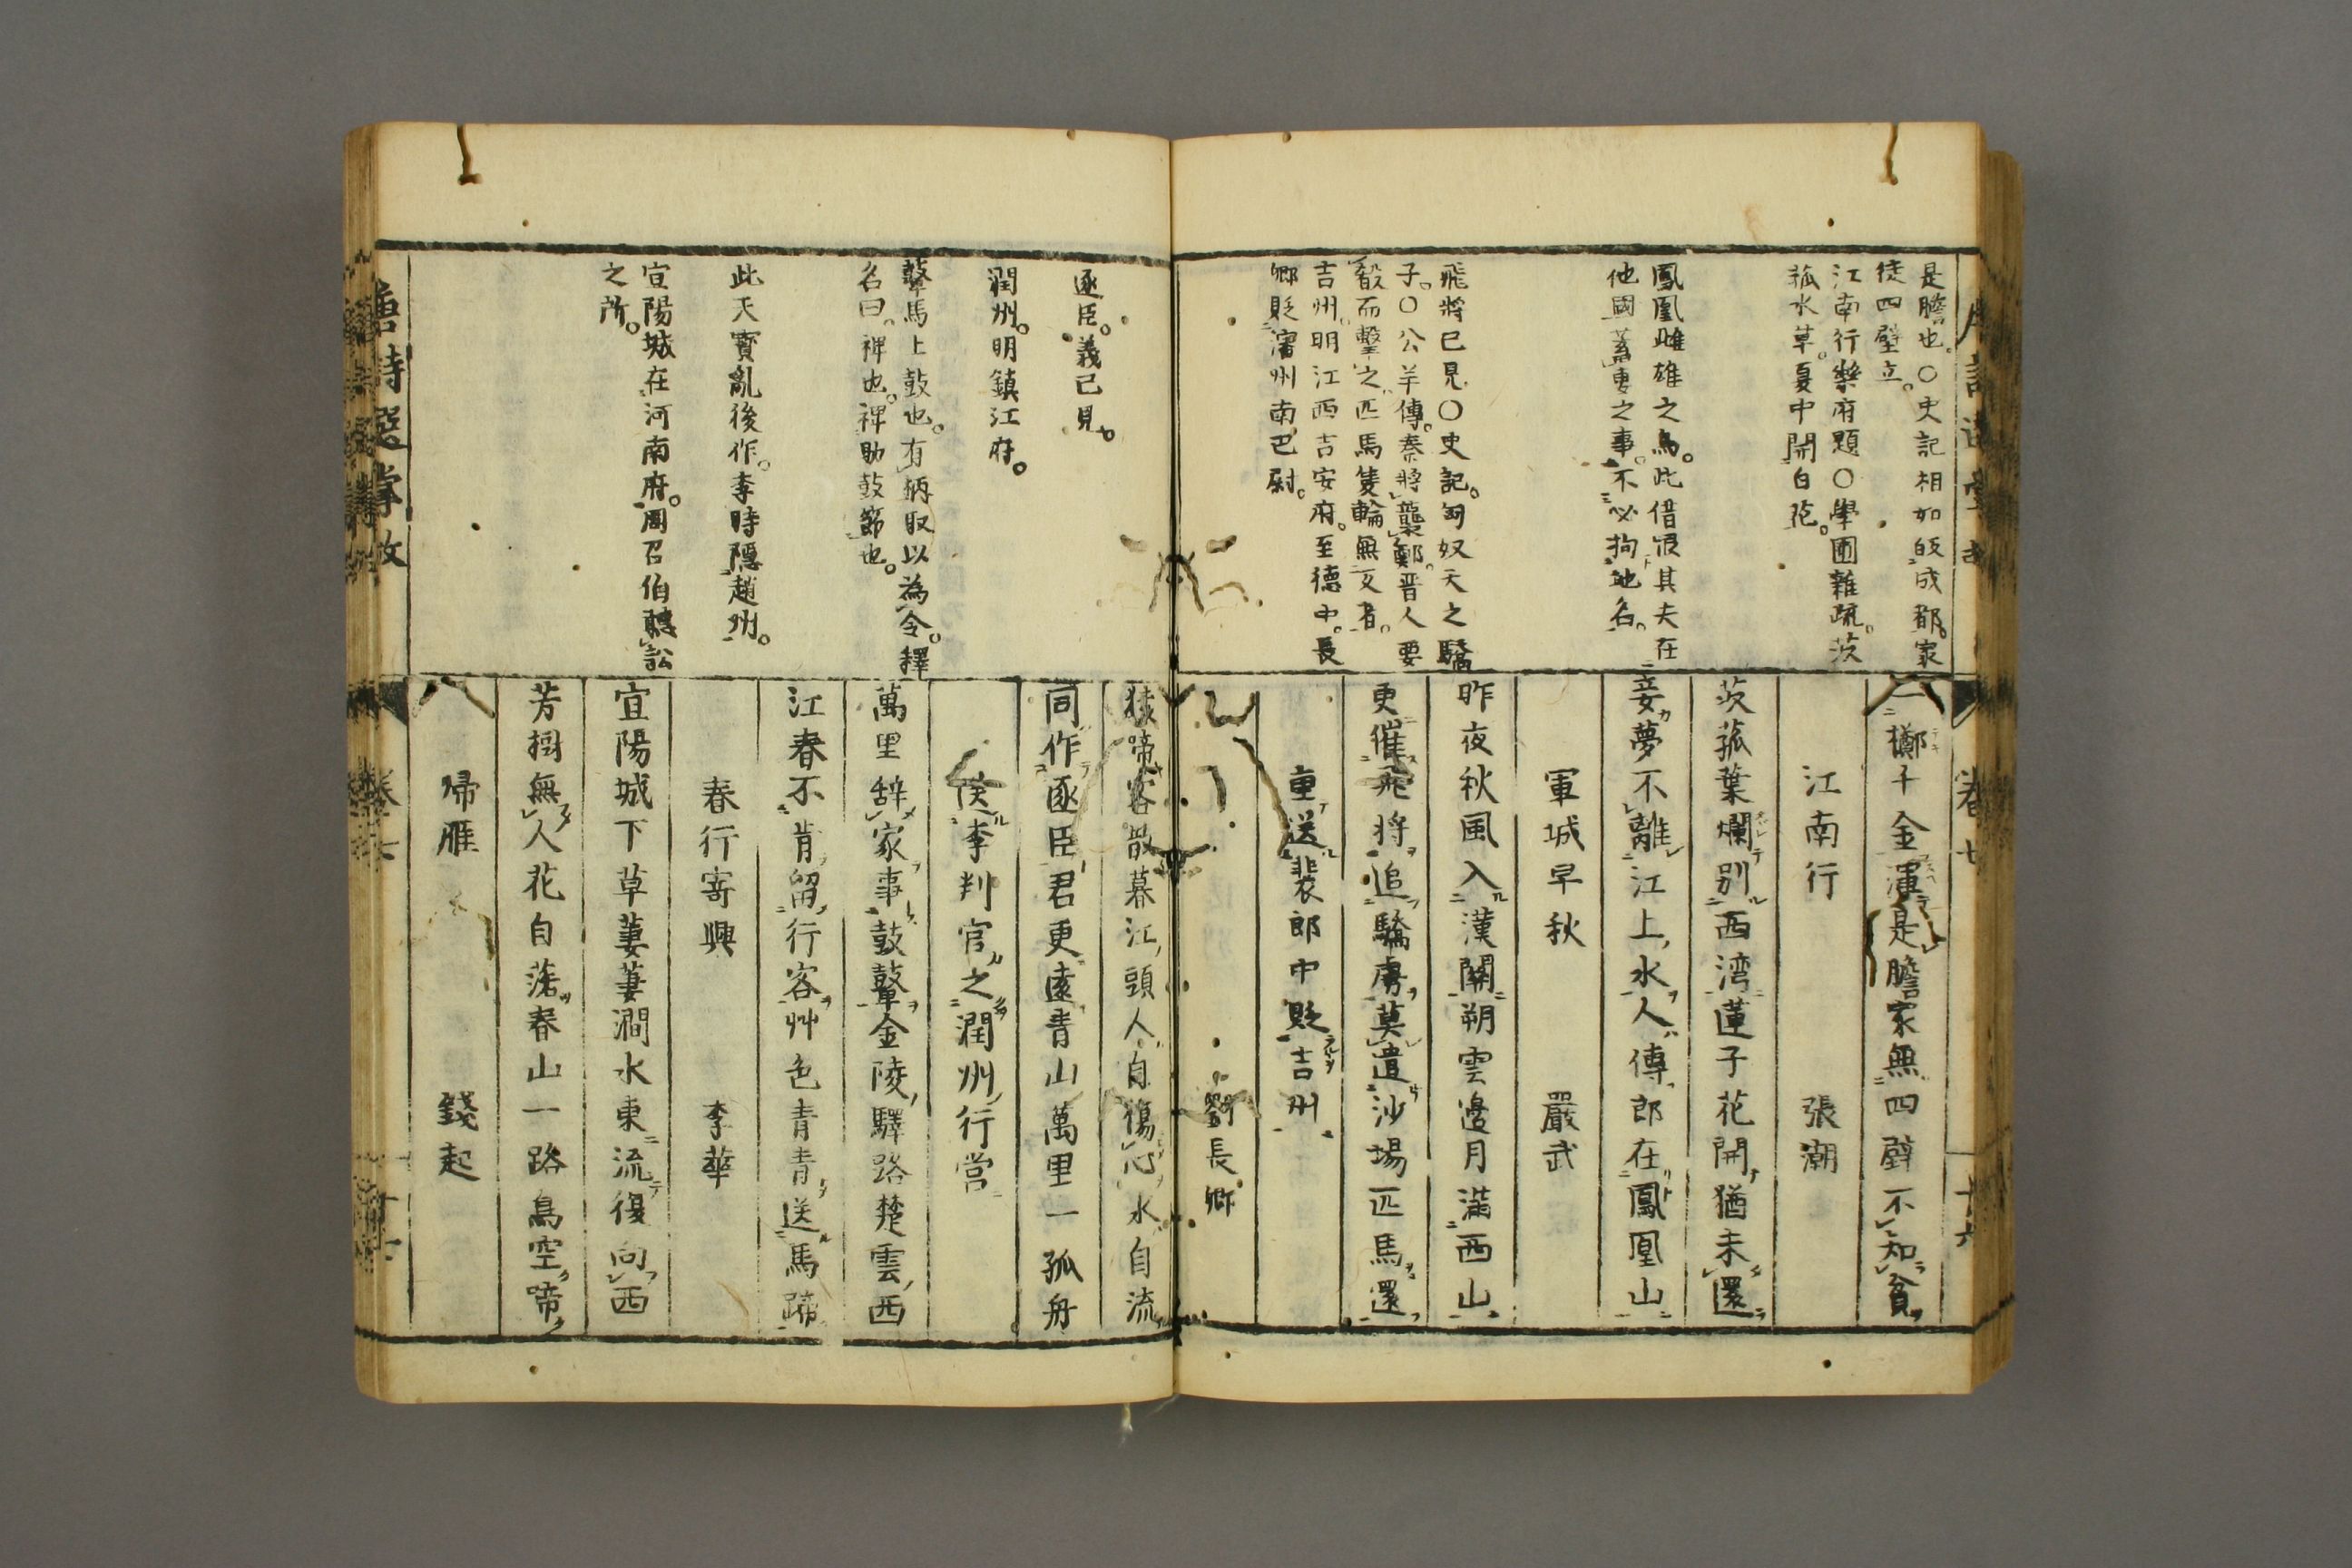 是膽也○史記相如皈成都家
徒四壁立
江南行樂府題○學圃雜疏茨
菰水草夏中開白花
鳳凰雌雄之鳥此借只其夫在
他國蓋妻之事不必拘地名
飛將已見○史記匈奴天之驕
子○公羊傳秦將襲鄭晋人要
殽而擊之匹馬隻輪無反者
吉州明江西吉安府至德中長
卿貶潘州南巴尉
一擲千金渾是膽家無四壁不知貧
江南行 張潮
茨菰葉爛別西湾蓮子花開猶未還
妾夢不離江上水人傳郎在鳳凰山
軍城早秋 嚴武
昨夜秋風入漢關朔雲邊月滿西山
更催飛將追驕虜莫遣沙場匹馬還
重送裴郎中貶吉州
劉長卿
卷七
十六
逐臣義已見
潤州明鎮江府
鼙馬上鼓也有柄取以為令釋
名曰裨也裨助鼓節也
此天寶亂後作李時隱趙州
宜陽城在河南府周召伯聽訟
之所
猿啼客散暮江頭人自傷心水自流
同作逐臣君更遠青山萬里一孤舟
李判官之潤州行営
萬里辞家事鼓鼙金陵驛路楚雲西
江春不肯留行客艸色青青送馬蹄
春行寄興 李華
宜陽城下草萋萋澗水東流復向西
芳樹無人花自落春山一路鳥空啼
帰雁 錢起
唐詩選掌故
卷七